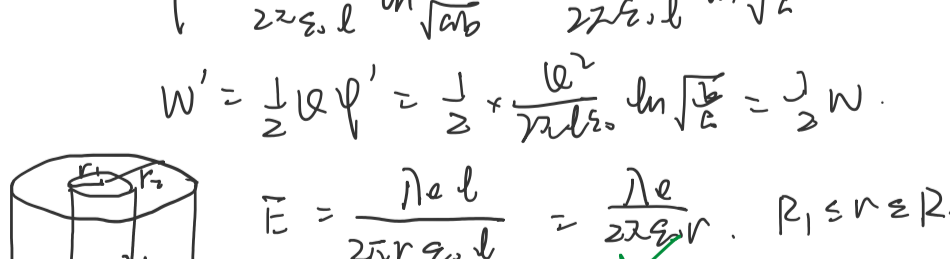 2πε₀l ln √ab 2πε₀l √a
W' = 1/2 Qφ' = 1/2 × Q²/2πlε₀ ln √b/a = 1/2 W.
r₁ r₂
E = λe l/2πrε₀l = λe/2πε₀r . R₁ ≤ r ≤ R